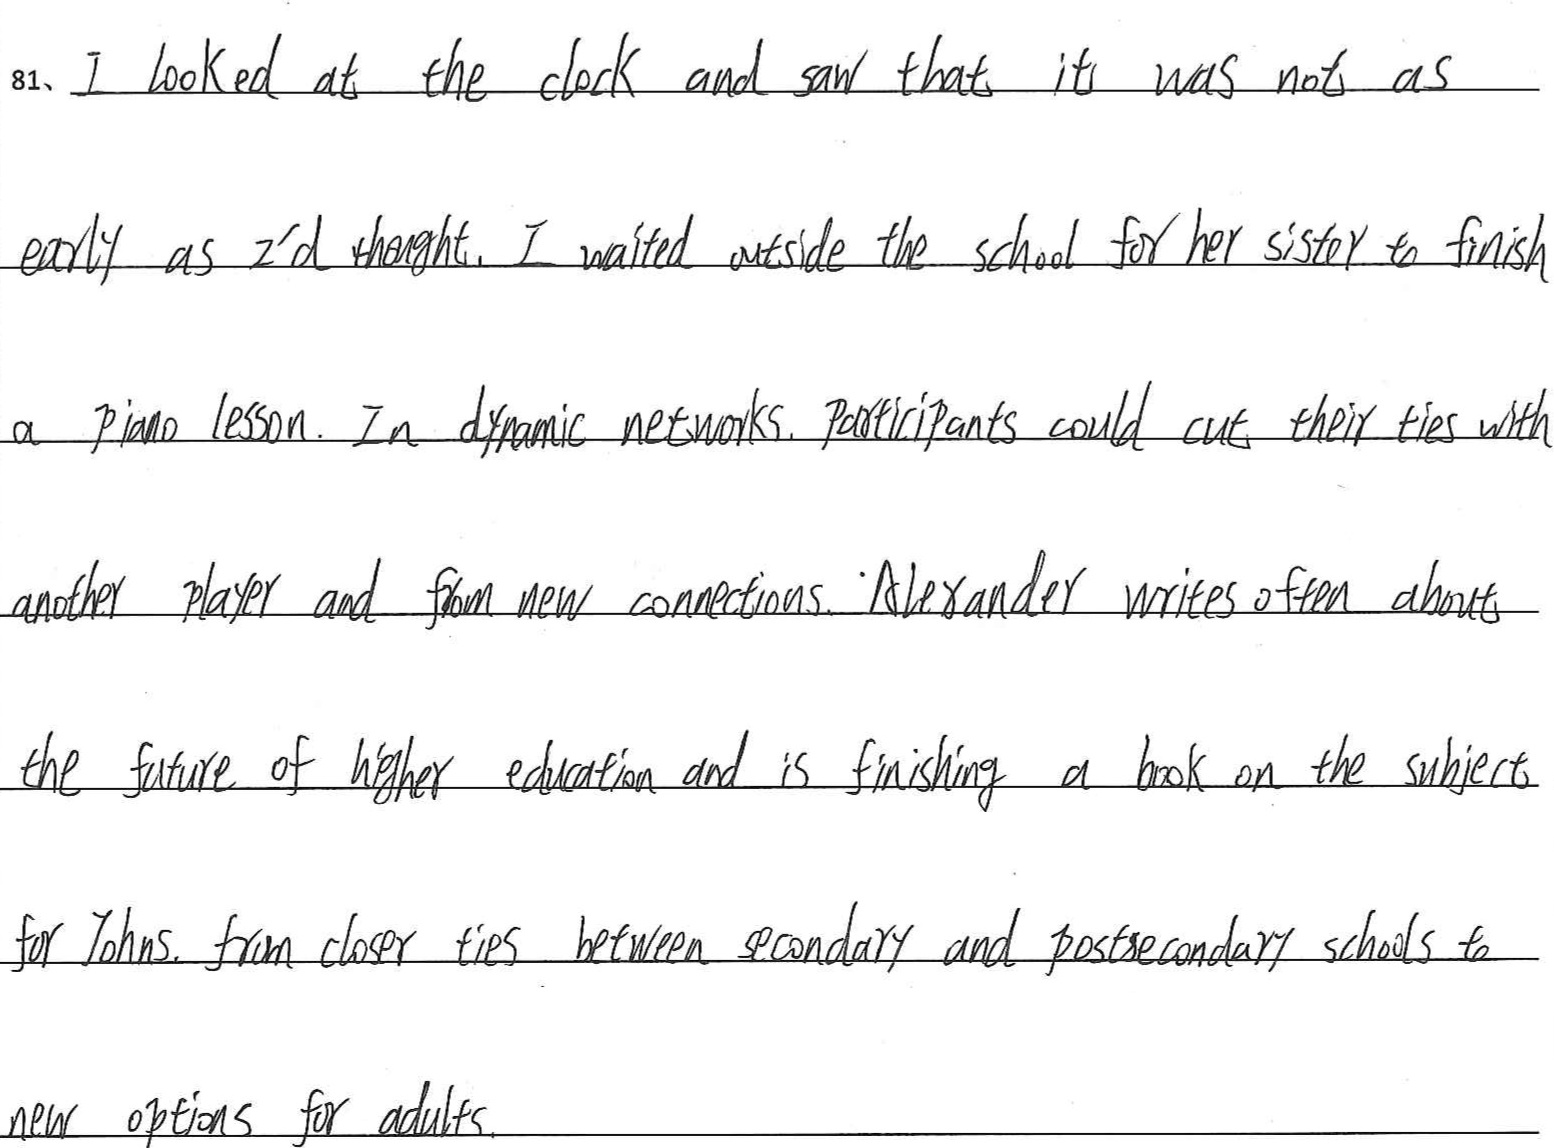 81、I looked at the clock and saw that it was not as
early as I'd thought. I waited outside the school for her sister to finish
a piano lesson. In dynamic networks. Participants could cut their ties with
another player and from new connections. Alexander writes often about
the future of higher education and is finishing a book on the subject
for Johns. from closer ties between secondary and postsecondary schools to
new options for adults.